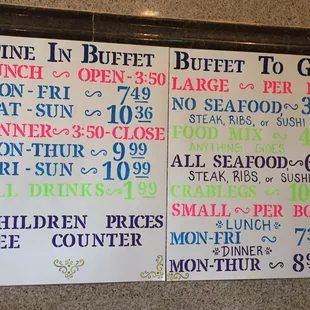 INE IN BUFFET
UNCH ~ OPEN - 3:50
ON-FRI ~ 7.49
AT-SUN ~ 10.36
NNER ~ 3:50-CLOSE
ON-THUR ~ 9.99
RI-SUN ~ 10.99
LL DRINKS ~ 1.99
HILDREN PRICES
EE COUNTER
BUFFET TO G
LARGE ~ PER
NO SEAFOOD ~ 3
STEAK, RIBS, OR SUSHI
FOOD MIX ~ 4
ANYTHING GOES
ALL SEAFOOD ~ 6
STEAK, RIBS, OR SUSHI
CRABLEGS ~ 10
SMALL ~ PER BO
*LUNCH*
MON-FRI ~ 7
*DINNER*
MON-THUR ~ 8